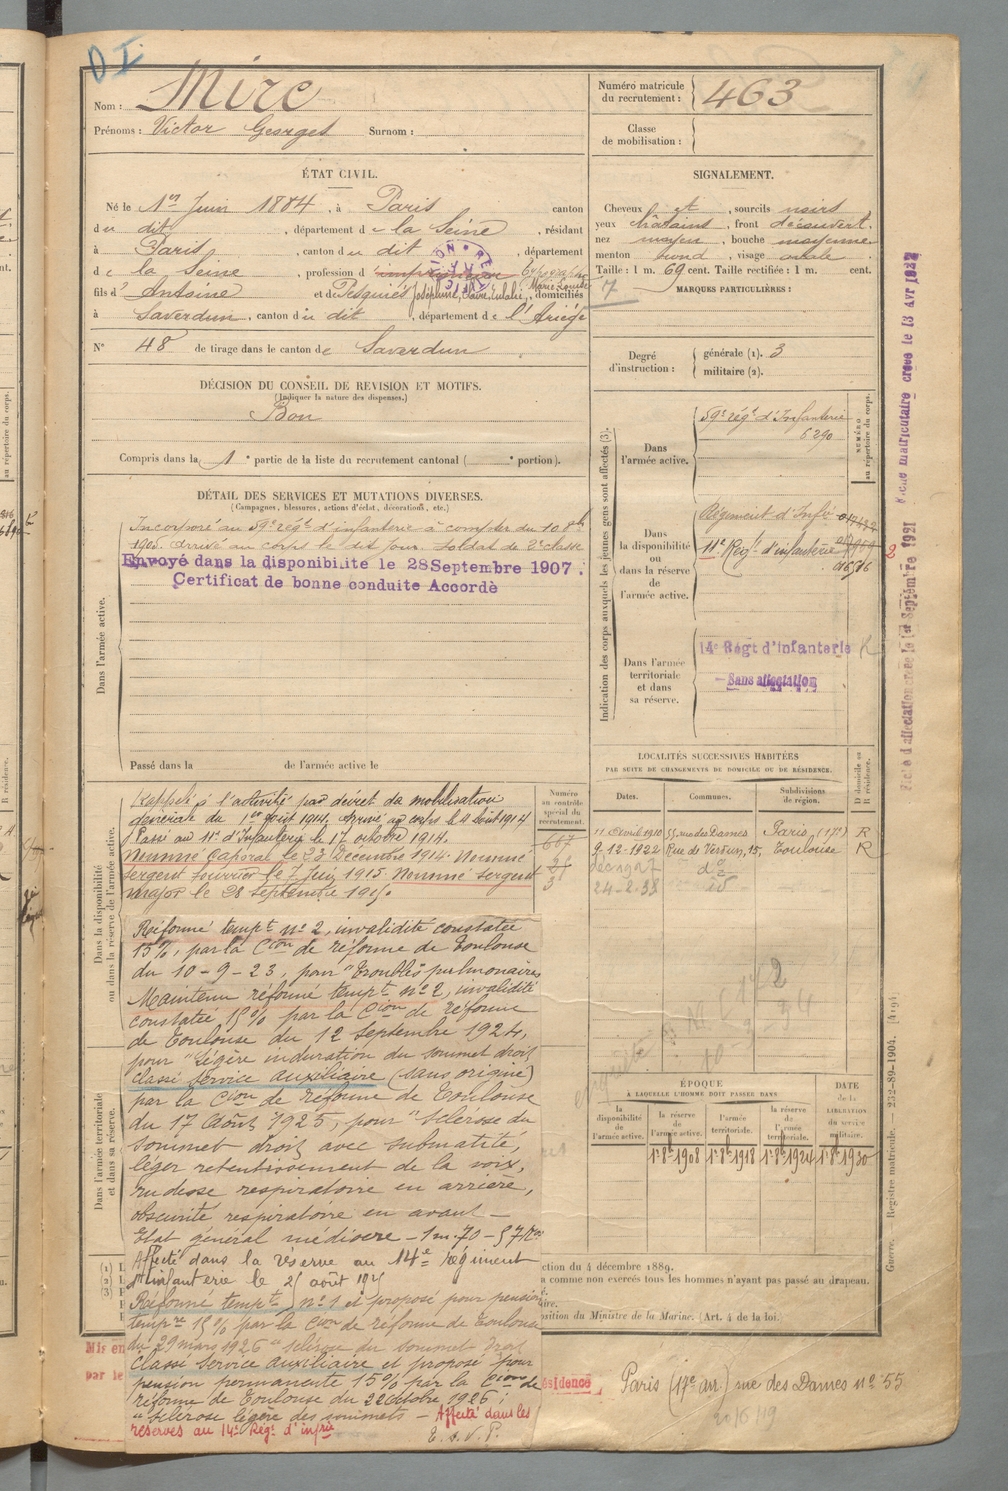 D I
Nom : Mirc
Prénoms : Victor Georges Surnom :
Numéro matricule
du recrutement : 463
Classe
de mobilisation :
ÉTAT CIVIL.
Né le 1er Juin 1884, à Paris canton
du dit, département de la Seine, résidant
à Paris, canton du dit, département
de la Seine, profession d'imprimeur typographe
fils d' Antoine et de Joséphine, Claire, Eulalie, Marie-Louise, domiciliés
à Saverdun, canton du dit, département de l'Ariège
N° 48 de tirage dans le canton de Saverdun
SIGNALEMENT.
Cheveux et, sourcils noirs
yeux châtains, front découvert,
nez moyen, bouche moyenne
menton rond, visage ovale
Taille : 1 m. 69 cent. Taille rectifiée : 1 m. cent.
MARQUES PARTICULIÈRES :
Degré
d'instruction :
générale (1). 3
militaire (2).
DÉCISION DU CONSEIL DE REVISION ET MOTIFS.
(Indiquer la nature des dispenses.)
Bon
Compris dans la 1e partie de la liste du recrutement cantonal ( e portion).
DÉTAIL DES SERVICES ET MUTATIONS DIVERSES.
(Campagnes, blessures, actions d'éclat, décorations, etc.)
Dans l'armée active.
Incorporé au 59e régt d'infanterie à compter du 10 8bre
1905. arrivé au corps le dit jour. Soldat de 2e classe
Envoyé dans la disponibilité le 28 Septembre 1907.
Certificat de bonne conduite Accordé
Passé dans la de l'armée active le
Indication des corps auxquels les jeunes gens sont affectés (3).
NUMÉRO
au répertoire du corps.
Dans
l'armée active.
59e régt d'Infanterie
6290
Dans
la disponibilité
ou
dans la réserve
de
l'armée active.
Régiment d'Infie
11e Régt d'infanterie
2
Dans l'armée
territoriale
et dans
sa réserve.
14e Régt d'Infanterie
Sans affectation
Fiche d'affectation créée le 1er Septembre 1921
Fiche matriculaire créée le 13 Avr
LOCALITÉS SUCCESSIVES HABITÉES
PAR SUITE DE CHANGEMENTS DE DOMICILE OU DE RÉSIDENCE.
Dates. Communes. Subdivisions
de région.
D domicile ou
R résidence.
11 Avril 1910 55 rue des Dames Paris (17e) R
9-12-1922 Rue de Verdun, 15, Toulouse R
24-2-38
Dans la disponibilité
ou dans la réserve de l'armée active.
Numéro
au contrôle
spécial du
recrutement.
667
Rappelé à l'activité par décret de mobilisation
générale du 1er août 1914. Arrivé au corps le 4 août 1914
Passé au 11e d'Infanterie le 17 octobre 1914.
Nommé Caporal le 23 Décembre 1914. Nommé
Sergent fourrier le 7 Juin 1915 Nommé Sergent
major le 28 Septembre 1915.
Réformé tempt n° 2, invalidité constatée
15%, par la Cion de réforme de Toulouse
du 10-9-23, pour "Troubles pulmonaires
Maintenu réformé tempt n° 2, invalidité
constatée 15% par la Cion de réforme
de Toulouse du 12 Septembre 1924,
pour "Légère induration du sommet droit
classé Service auxiliaire (sans origine)
par la Cion de réforme de Toulouse
du 17 Août 1925, pour "sclérose du
sommet droit avec submatité,
léger retentissement de la voix,
rudesse respiratoire en arrière,
obscurité respiratoire en avant -
Etat général médiocre - 1m.70 - 57K
Affecté dans la réserve au 14e régiment
d'infanterie le 25 août
Réformé tempt n° 1 et proposé pour pension
tempre 15% par la Cion de réforme de Toulouse
du 29 mars 1926 "sclérose du sommet droit
Classé Service auxiliaire et proposé pour
pension permanente 15% par la Cion de
réforme de Toulouse du 22 Octobre 1926 ;
"sclérose légère des sommets - Affecté dans les
réserves au 14e Régt d'infrie
T. S. V. P.
Dans l'armée territoriale
et dans sa réserve.
ÉPOQUE
À LAQUELLE L'HOMME DOIT PASSER DANS
DATE
de la
LIBÉRATION
du service
militaire.
la
disponibilité
de
l'armée active.
la réserve
de
l'armée active.
l'armée
territoriale.
la réserve
de
l'armée
territoriale.
1er 8bre 1908 1er 8bre 1918 1er 8bre 1924 1er 8bre 1930
ction du 4 décembre 1889.
a comme non exercés tous les hommes n'ayant pas passé au drapeau.
ire.
osition du Ministre de la Marine. (Art. 4 de la loi.
Guerre. Registre matricule. 232-89-1904.
Mis en
par le
ésidence
Paris (17e arr) rue des Dames n° 55